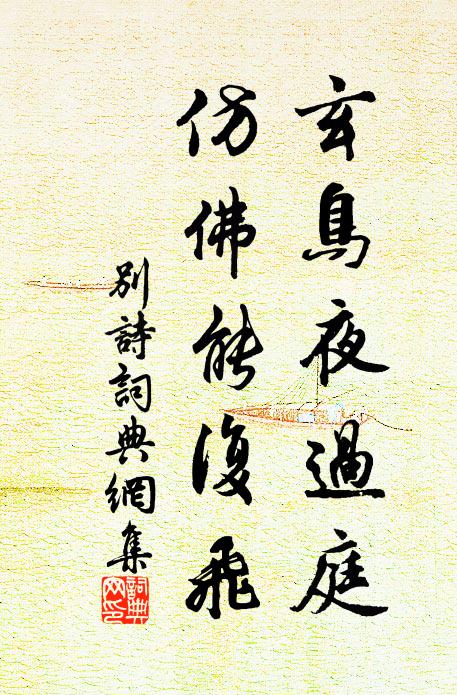 玄鳥夜過庭
仿佛能復飛
別詩詞典網集
詞典網印